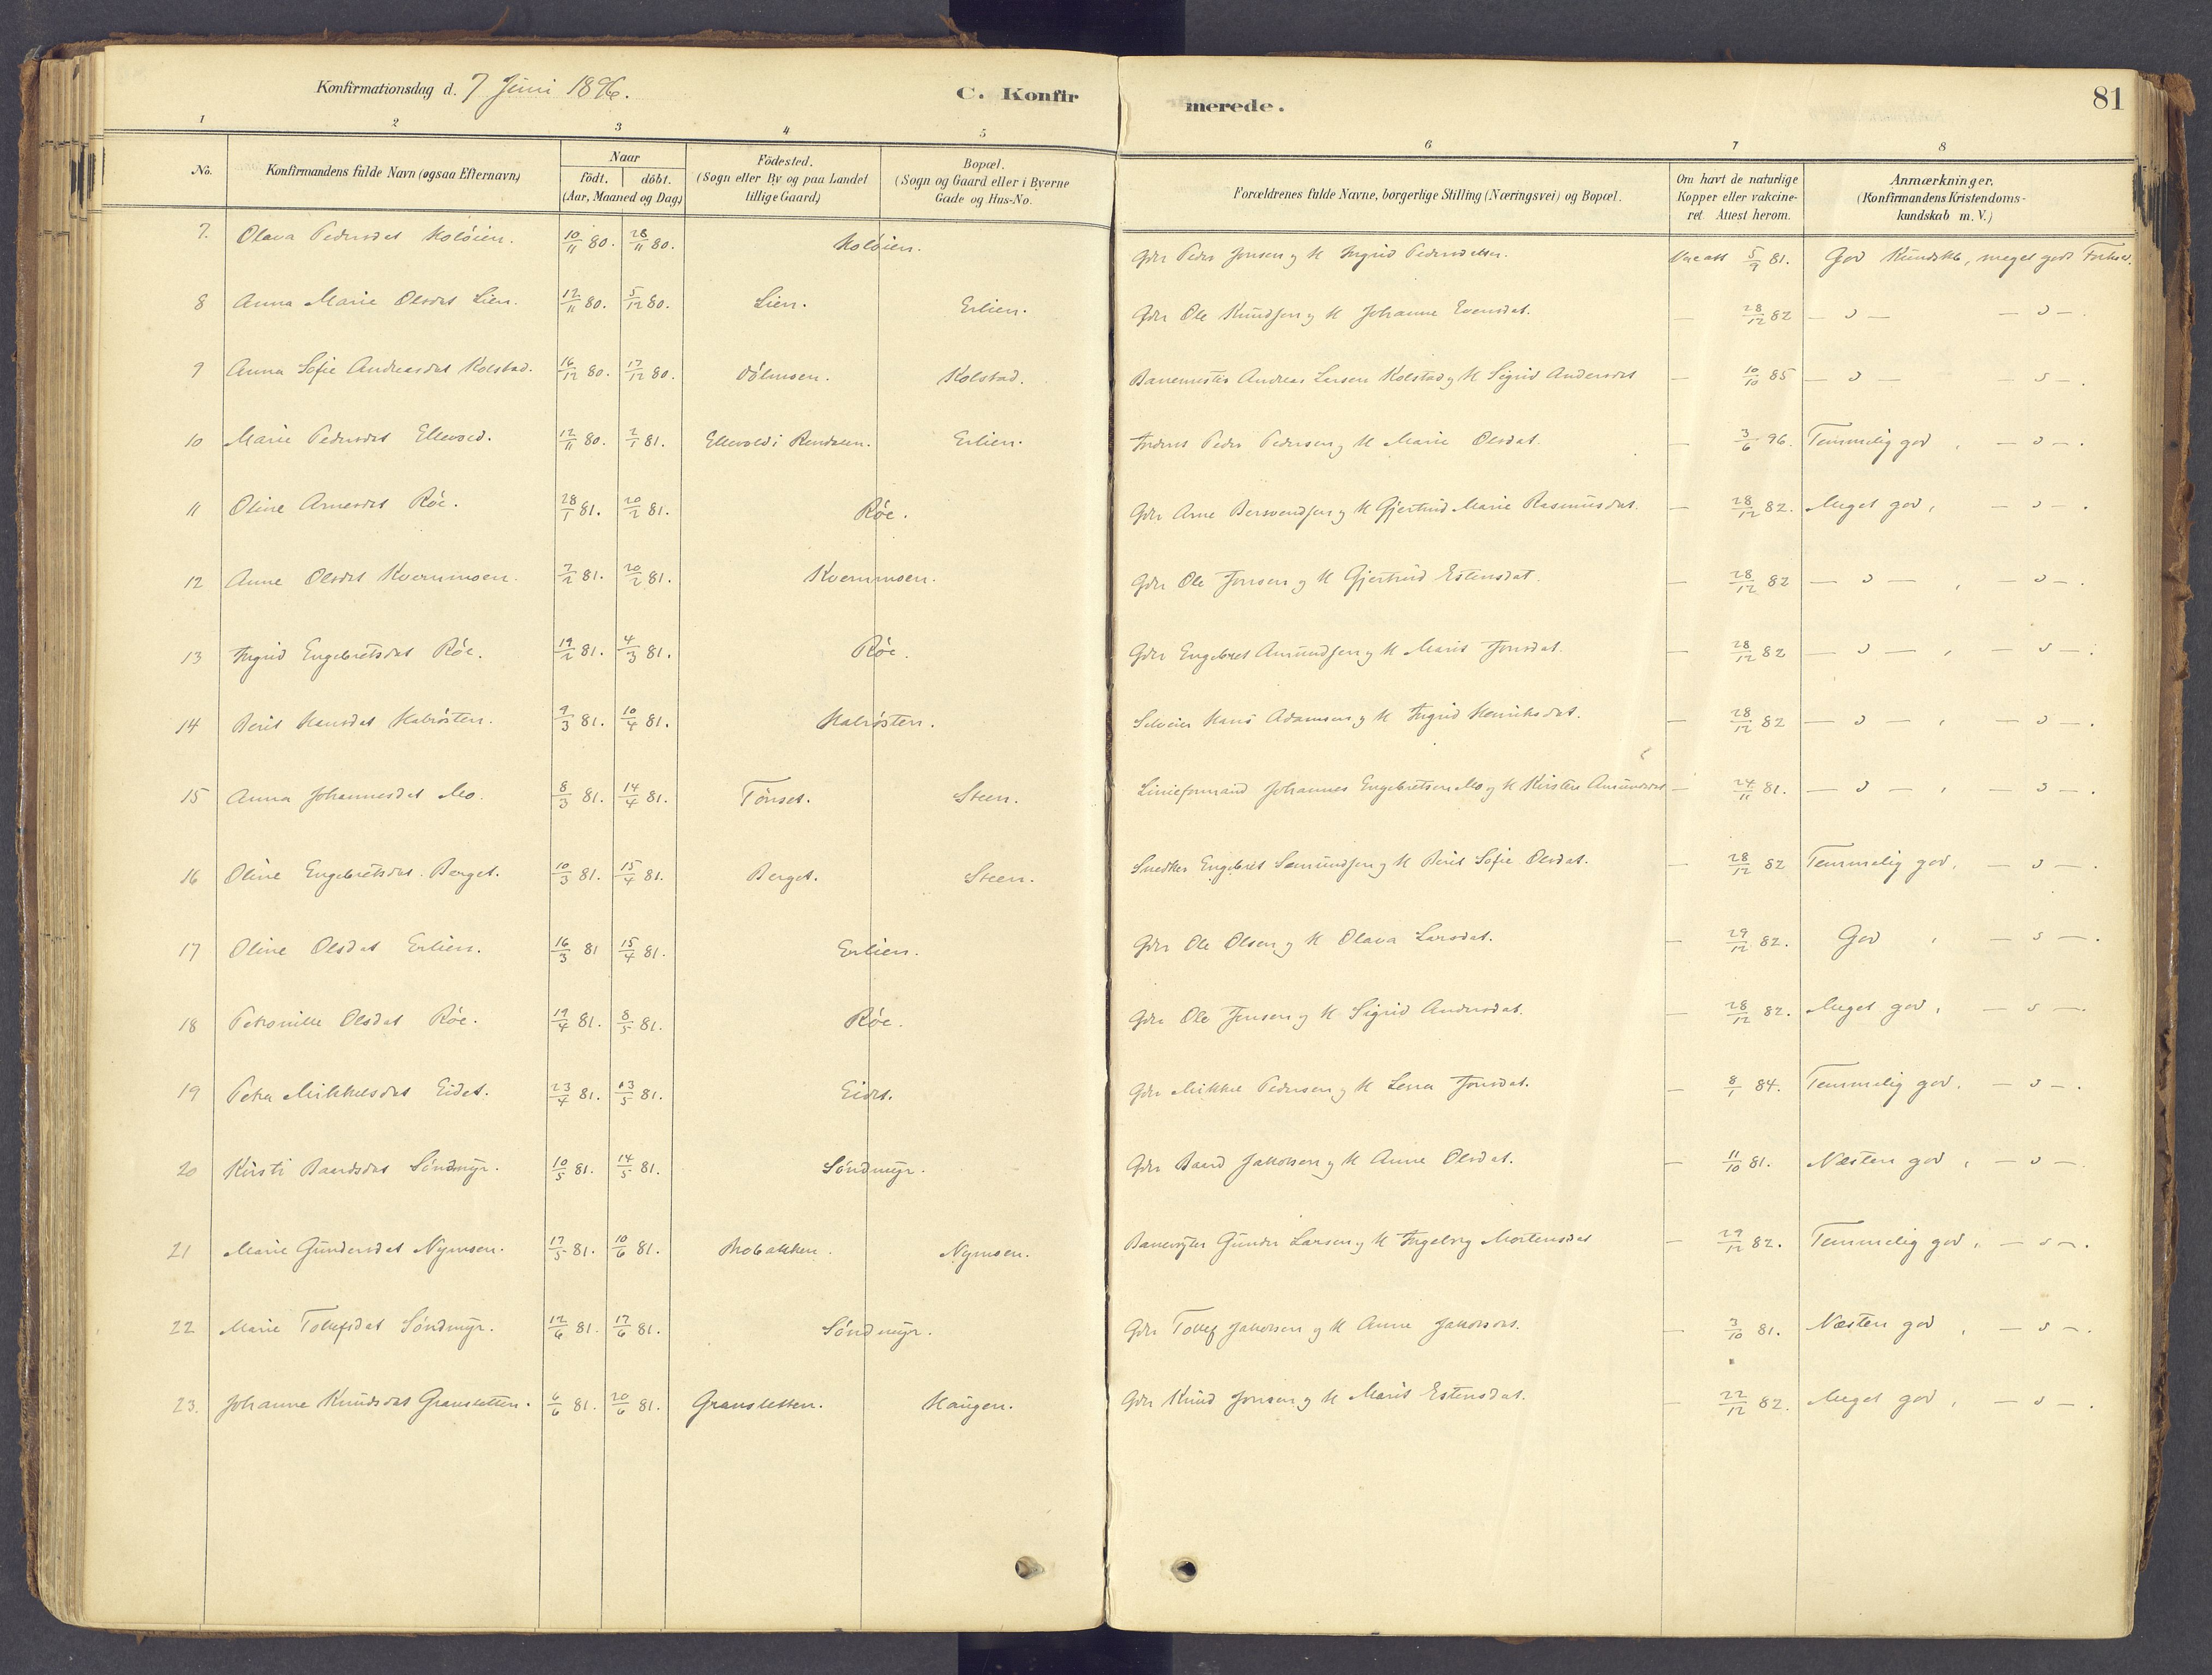 Konfirmationsdag d. 7 Juni 1896.
C. Konfirmerede.
81
1 2 3 4 5 6 7 8
No. Konfirmandens fulde Navn (ogsaa Efternavn) Naar födt. döbt. (Aar, Maaned og Dag) Födested. (Sogn eller By og paa Landet tillige Gaard) Bopæl. (Sogn og Gaard eller i Byerne Gade og Hus-No. Forældrenes fulde Navne, borgerlige Stilling (Næringsvei) og Bopæl. Om havt de naturlige Kopper eller vakcineret. Attest herom. Anmærkninger. (Konfirmandens Kristendomskundskab m. V.)
7. Olava Pedersdat Koløien. 10/11 80. 28/11 80. Koløien. Gdr Peder Jonsen og K Ingrid Pedersdatter. 5/9 81. God Kundskb, meget godt Forhold.
8 Anna Marie Olsdat Lien. 12/11 80. 5/12 80. Lien. Erlien. Gdr Ole Knudsen og K Johanne Evensdat. — 28/12 82 — " — — " — .
9 Anna Sofie Andreasdat Kolstad. 16/12 80. 17/12 80. Kolstad. Banemester Andreas Larsen Kolstad og K Sigrid Andersdat — 10/10 85 — " — — " — .
10 Marie Pedersdat Ellevold. 12/11 80. 2/1 81. Ellevold i Rendalen. Erlien. Inderst Peder Pedersen og K Marie Olsdat. — 3/6 96. Temmelig god, — " — .
11 Oline Arnesdat Røe. 28/1 81. 20/2 81. Røe. Gdr Arne Bersvendsen og K Gjertrud Marie Rasmusdat. — 28/12 82. Meget god, — " — .
12 Anne Olsdat Kvernmoen. 7/2 81. 20/2 81. Kvernmoen. Gdr Ole Jonsen og K Gjertrud Estensdat. — 28/12 82 — " — , — " — .
13 Ingrid Engebretsdat Røe. 19/2 81. 4/3 81. Røe. Gdr Engebret Amundsen og K Marit Jonsdat. — 28/12 82 — " — , — " — .
14 Berit Hansdat Kalrøsten. 9/3 81. 10/4 81. Kalrøsten. Selveier Hans Adamsen og K Ingrid Henriksdat. — 28/12 82 — " — , — " — .
15 Anna Johannesdat Mo. 8/3 81. 14/4 81. Tönset. Steen. Linieformand Johannes Engebretsen Mo og K Kirsten Amundsdat — 24/11 81. — " — , — " — .
16 Oline Engebretsdat Berget. 10/3 81. 15/4 81. Berget. Steen. Snedker Engebret Samundsen og K Berit Sofie Olsdat. — 28/12 82 Temmelig god, — " — .
17 Oline Olsdat Erlien. 16/3 81 15/4 81. Erlien. Gdr Ole Olsen og K Olava Larsdat. — 29/12 82. God , — " — .
18 Petronille Olsdat Røe. 19/4 81. 8/5 81. Røe. Gdr Ole Jensen og K Sigrid Andersdat. — 28/12 82. Meget god, — " — .
19 Petra Mikkelsdat Eidet. 23/4 81. 13/5 81. Eidet. Gdr Mikkel Pedersen og K Lena Jonsdat. — 8/1 84. Temmelig god. — " — .
20 Kirsti Baardsdat Søndmyr. 10/5 81. 14/5 81. Søndmyr. Gdr Baard Jakobsen og K Anne Olsdat. — 11/10 81. Næsten god, — " — .
21 Marie Gundersdat Nymoen. 17/5 81. 10/6 81. Mobakken. Nymoen. Banevogter Gunder Larsen og K Ingeborg Mortensdat — 29/12 82. Temmelig god, — " — .
22 Marie Tollefsdat Søndmyr. 12/6 81. 17/6 81. Søndmyr. Gdr Tollef Jakobsen og K Anne Jakobsds. — 3/10 81. Næsten god , — " — .
23. Johanne Knudsdat Gransletten. 6/6 81. 20/6 81. Gransletten. Haugen. Gdr Knud Jonsen og K Marit Estensdat. — 22/12 82. Meget god, — " — .